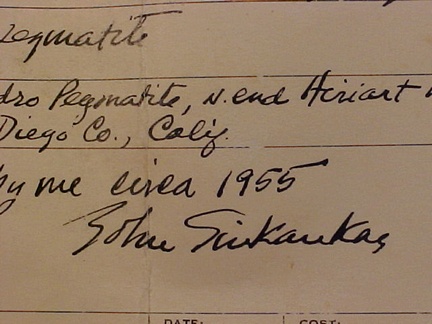 Pegmatite
dro Pegmatite, N. end Hiriart
Diego Co., Calif.
by me circa 1955
John Sinkankas
DATE: COST: